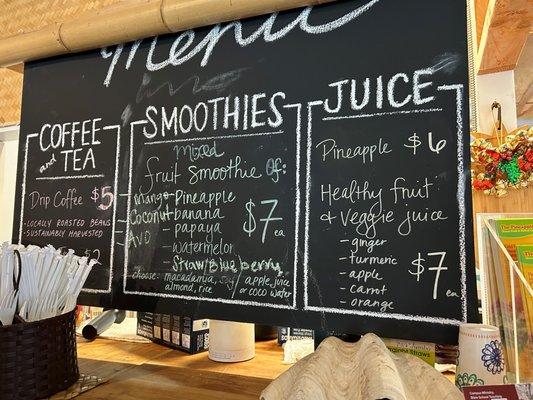 Menu
COFFEE
and TEA
Drip Coffee $5
- LOCALLY ROASTED BEANS
- SUSTAINABLY HARVESTED
SMOOTHIES
mixed
fruit Smoothie of:
mango - Pineapple
Coconut - banana
Avo - papaya
- watermelon
- Straw/Blueberry
$7 ea
choose: macadamia, soy/apple juice
almond, rice or coco water
JUICE
Pineapple $6
Healthy fruit
& Veggie juice
- ginger
- turmeric
- apple
- carrot
- orange
$7 ea